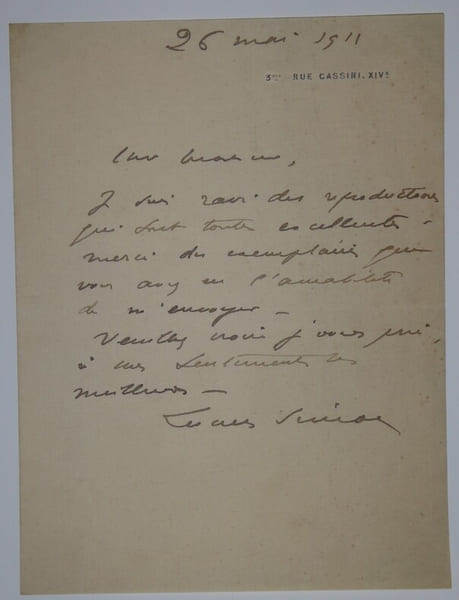 26 mai 1911
3bis RUE CASSINI. XIVe
Cher Monsieur,
Je suis ravi des reproductions
qui sont toutes excellentes -
merci des exemplaires que
vous avez eu l'amabilité
de m'envoyer -
Veuillez croire je vous prie,
à mes sentiments les
meilleurs -
Lucien Simon